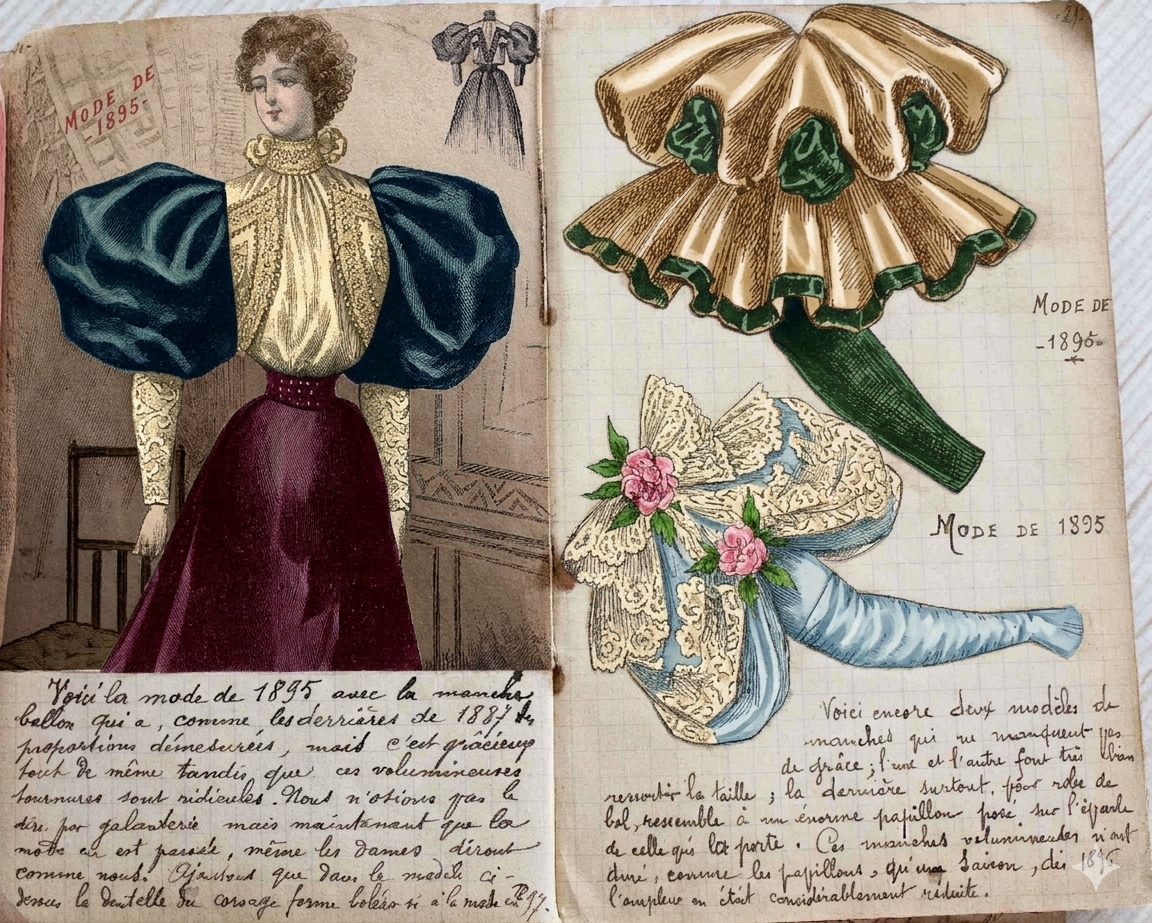 MODE DE
-1895-
Voici la mode de 1895 avec la manche
ballon qui a, comme les derrières de 1887 des
proportions démesurées, mais c'est grâcieux
tout de même tandis que ces volumineuses
tournures sont ridicules. Nous n'osions pas le
dire, par galanterie mais maintenant que la
mode en est passée, même les dames diront
comme nous. Ajoutons que dans le modèle ci-
dessus la dentelle du corsage forme boléro si à la mode en 97.
29
MODE DE
-1895-
MODE DE 1895
Voici encore deux modèles de
manches qui ne manquent pas
de grâce ; l'une et l'autre font très bien
ressortir la taille ; la dernière surtout, pour robe de
bal, ressemble à un énorme papillon posé sur l'épaule
de celle qui la porte. Ces manches volumineuses n'ont
duré, comme les papillons, qu'une saison, dès 1896
l'ampleur en était considérablement réduite.